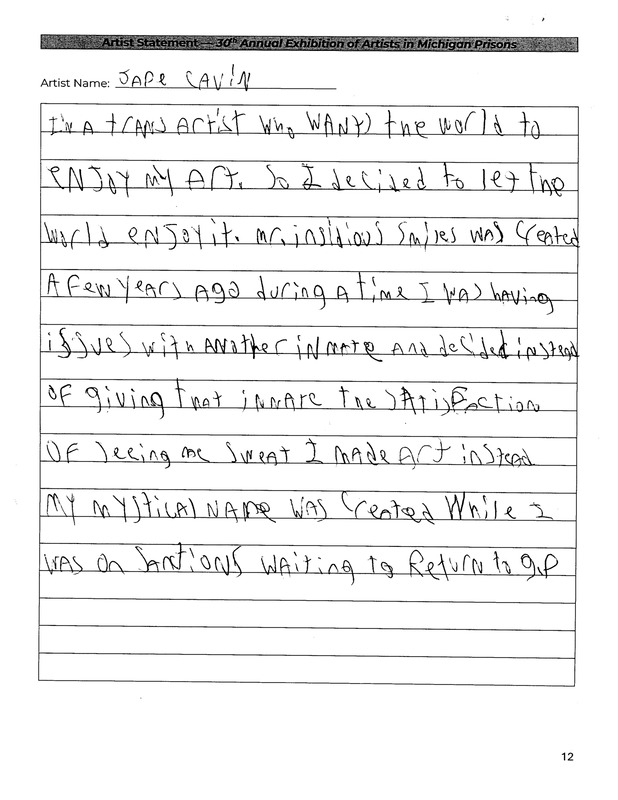 Artist Statement — 30th Annual Exhibition of Artists in Michigan Prisons
Artist Name: JAPE CAVIN
I'm A trans Artist who WANTS the world to
ENJOY my Art. So I decided to let the
World ENJOY it. mr. insidious Smiles WAS Created
A Few YEArs Ago during A time I WAS having
issues with ANother iNmate And decided instead
OF giving that inmate the SAtisFaction
OF Seeing me Sweat I mADe Art inStead
MY mystical NAme WAS Created While I
WAS on SAnctioNS WAiting to Return to g.p
12